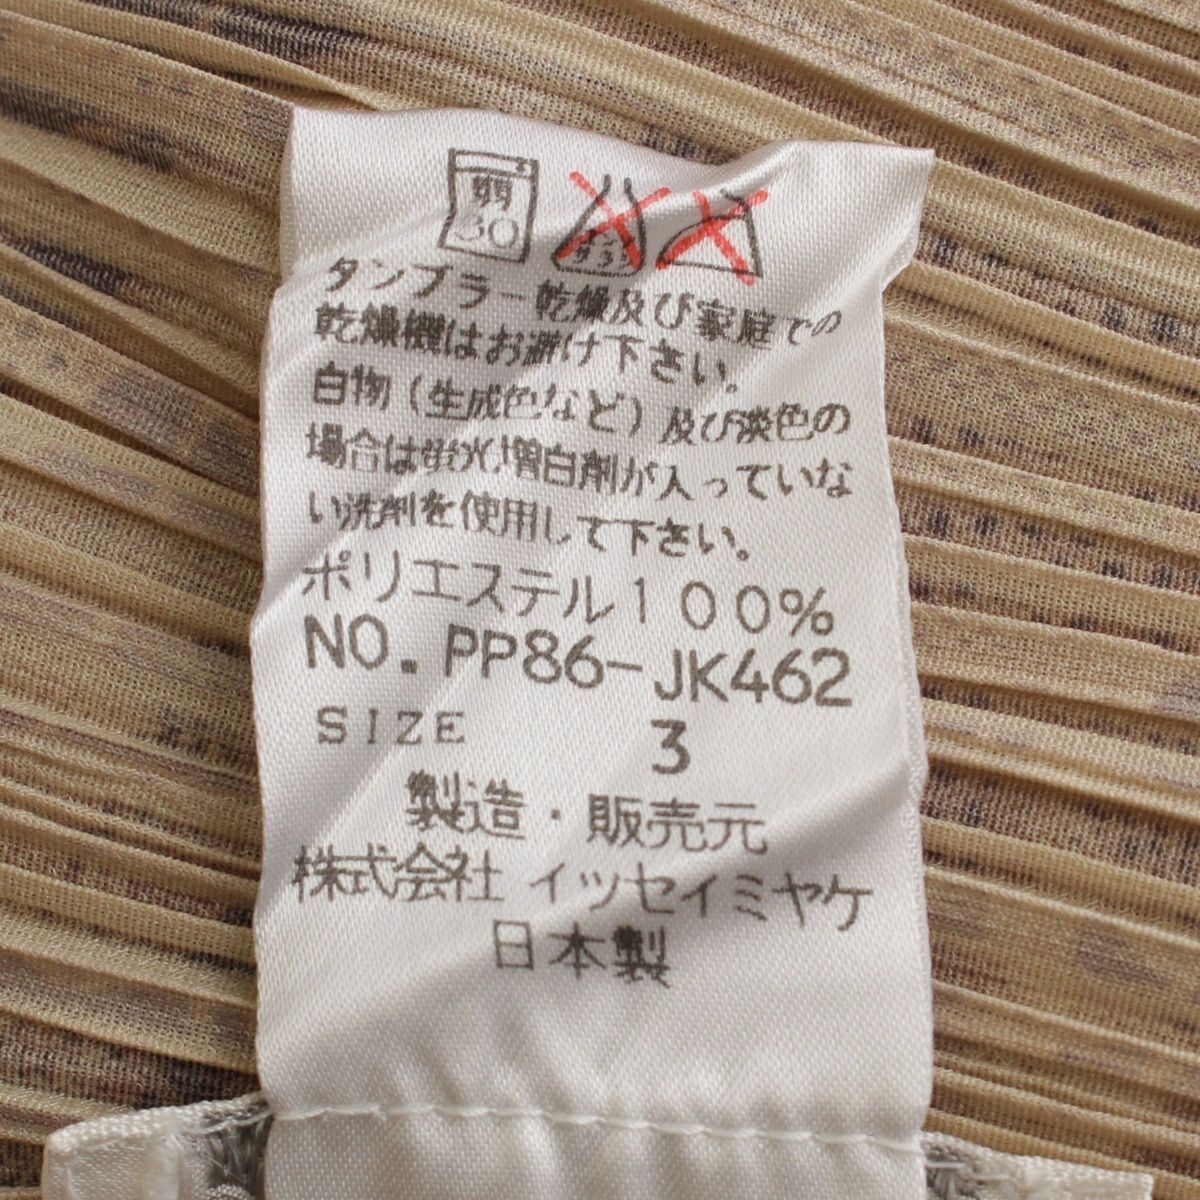 弱
30
エンソ
サラシ
タンブラー乾燥及び家庭での
乾燥機はお避け下さい。
白物（生成色など）及び淡色の
場合は蛍光増白剤が入っていな
い洗剤を使用して下さい。
ポリエステル100%
NO. PP86-JK462
SIZE 3
製造・販売元
株式会社 イッセイミヤケ
日本製